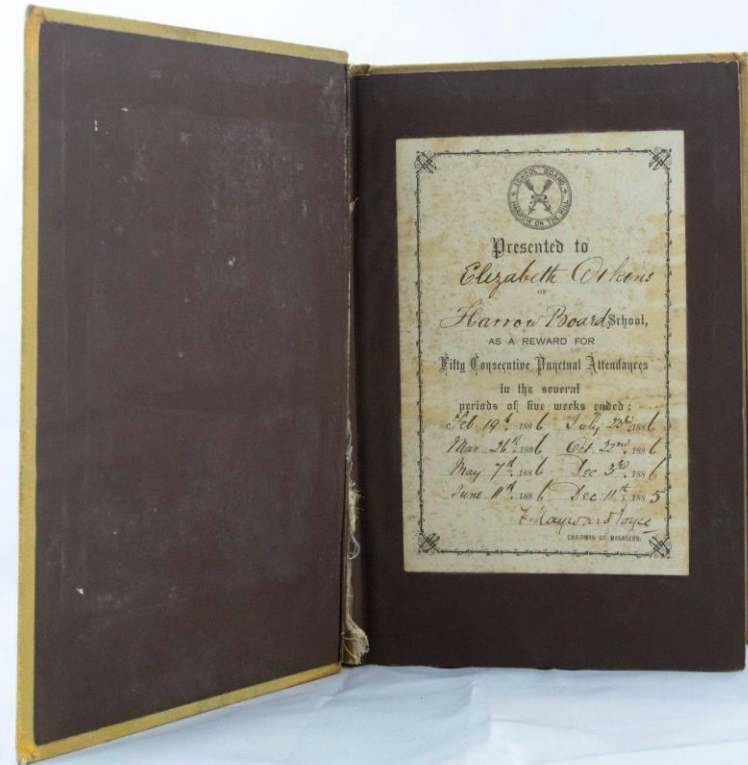 SCHOOL BOARD
HARROW ON THE HILL
Presented to
Elizabeth
OF
Harrow Board School,
AS A REWARD FOR
Fifty Consecutive Punctual Attendances
in the several
periods of five weeks ended:
Feb 19th 1886 July 23rd 1886
Mar 26th 1886 Oct. 22nd 1886
May 7th 1886 Dec 3rd 1886
June 11th 1886 Dec 11th 1885
F. Hayward Joyce
CHAIRMAN OF MANAGERS.